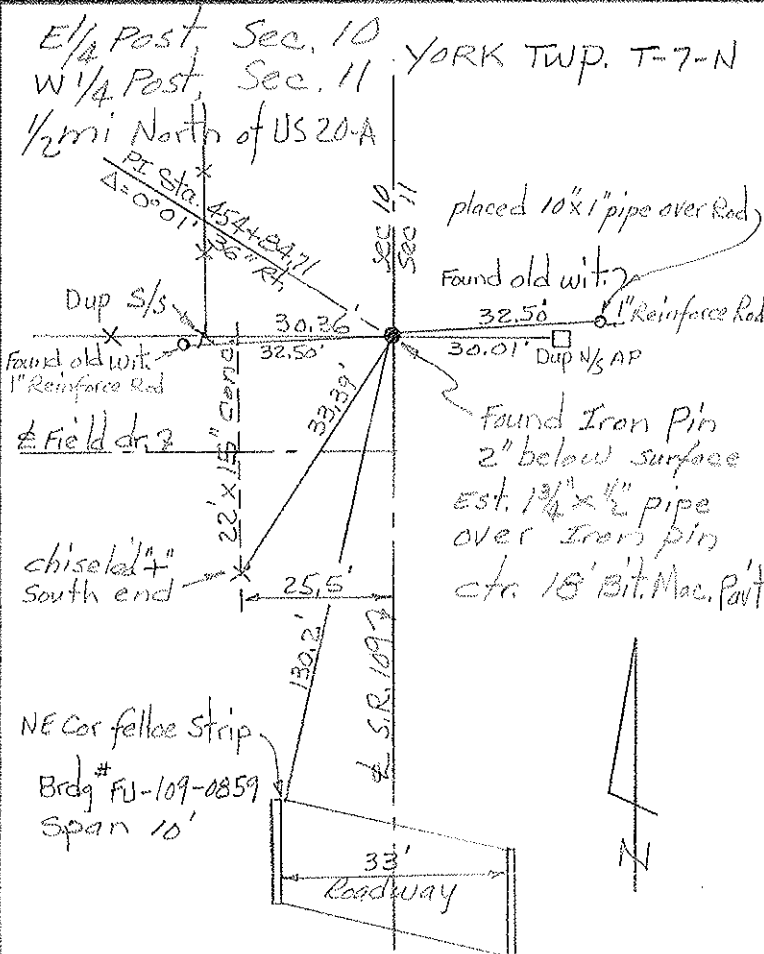 E 1/4 Post, Sec. 10
W 1/4 Post, Sec. 11
1/2 mi North of US 20-A
YORK TWP. T-7-N
PI Sta. 454+84.71
Δ=0°01'36" Rt.
Sec 10
Sec 11
placed 10"x1" pipe over Rod
Found old wit.
1" Reinforce Rod
32.50'
30.01'
Dup N/S AP
Dup S/S
30.36'
32.50'
Found old wit.
1" Reinforce Rod
℄ Field dr.
22' x 15" Conc.
33.39'
Found Iron Pin
2" below surface
Est. 1 3/4" x 1/2" pipe
over Iron pin
ctr. 18' Bit. Mac. Pav't
chiseled "+"
South end
25.5'
130.2'
℄ S.R. 109
NE Cor felloe Strip
Brdg # FU-109-0859
Span 10'
33'
Roadway
N